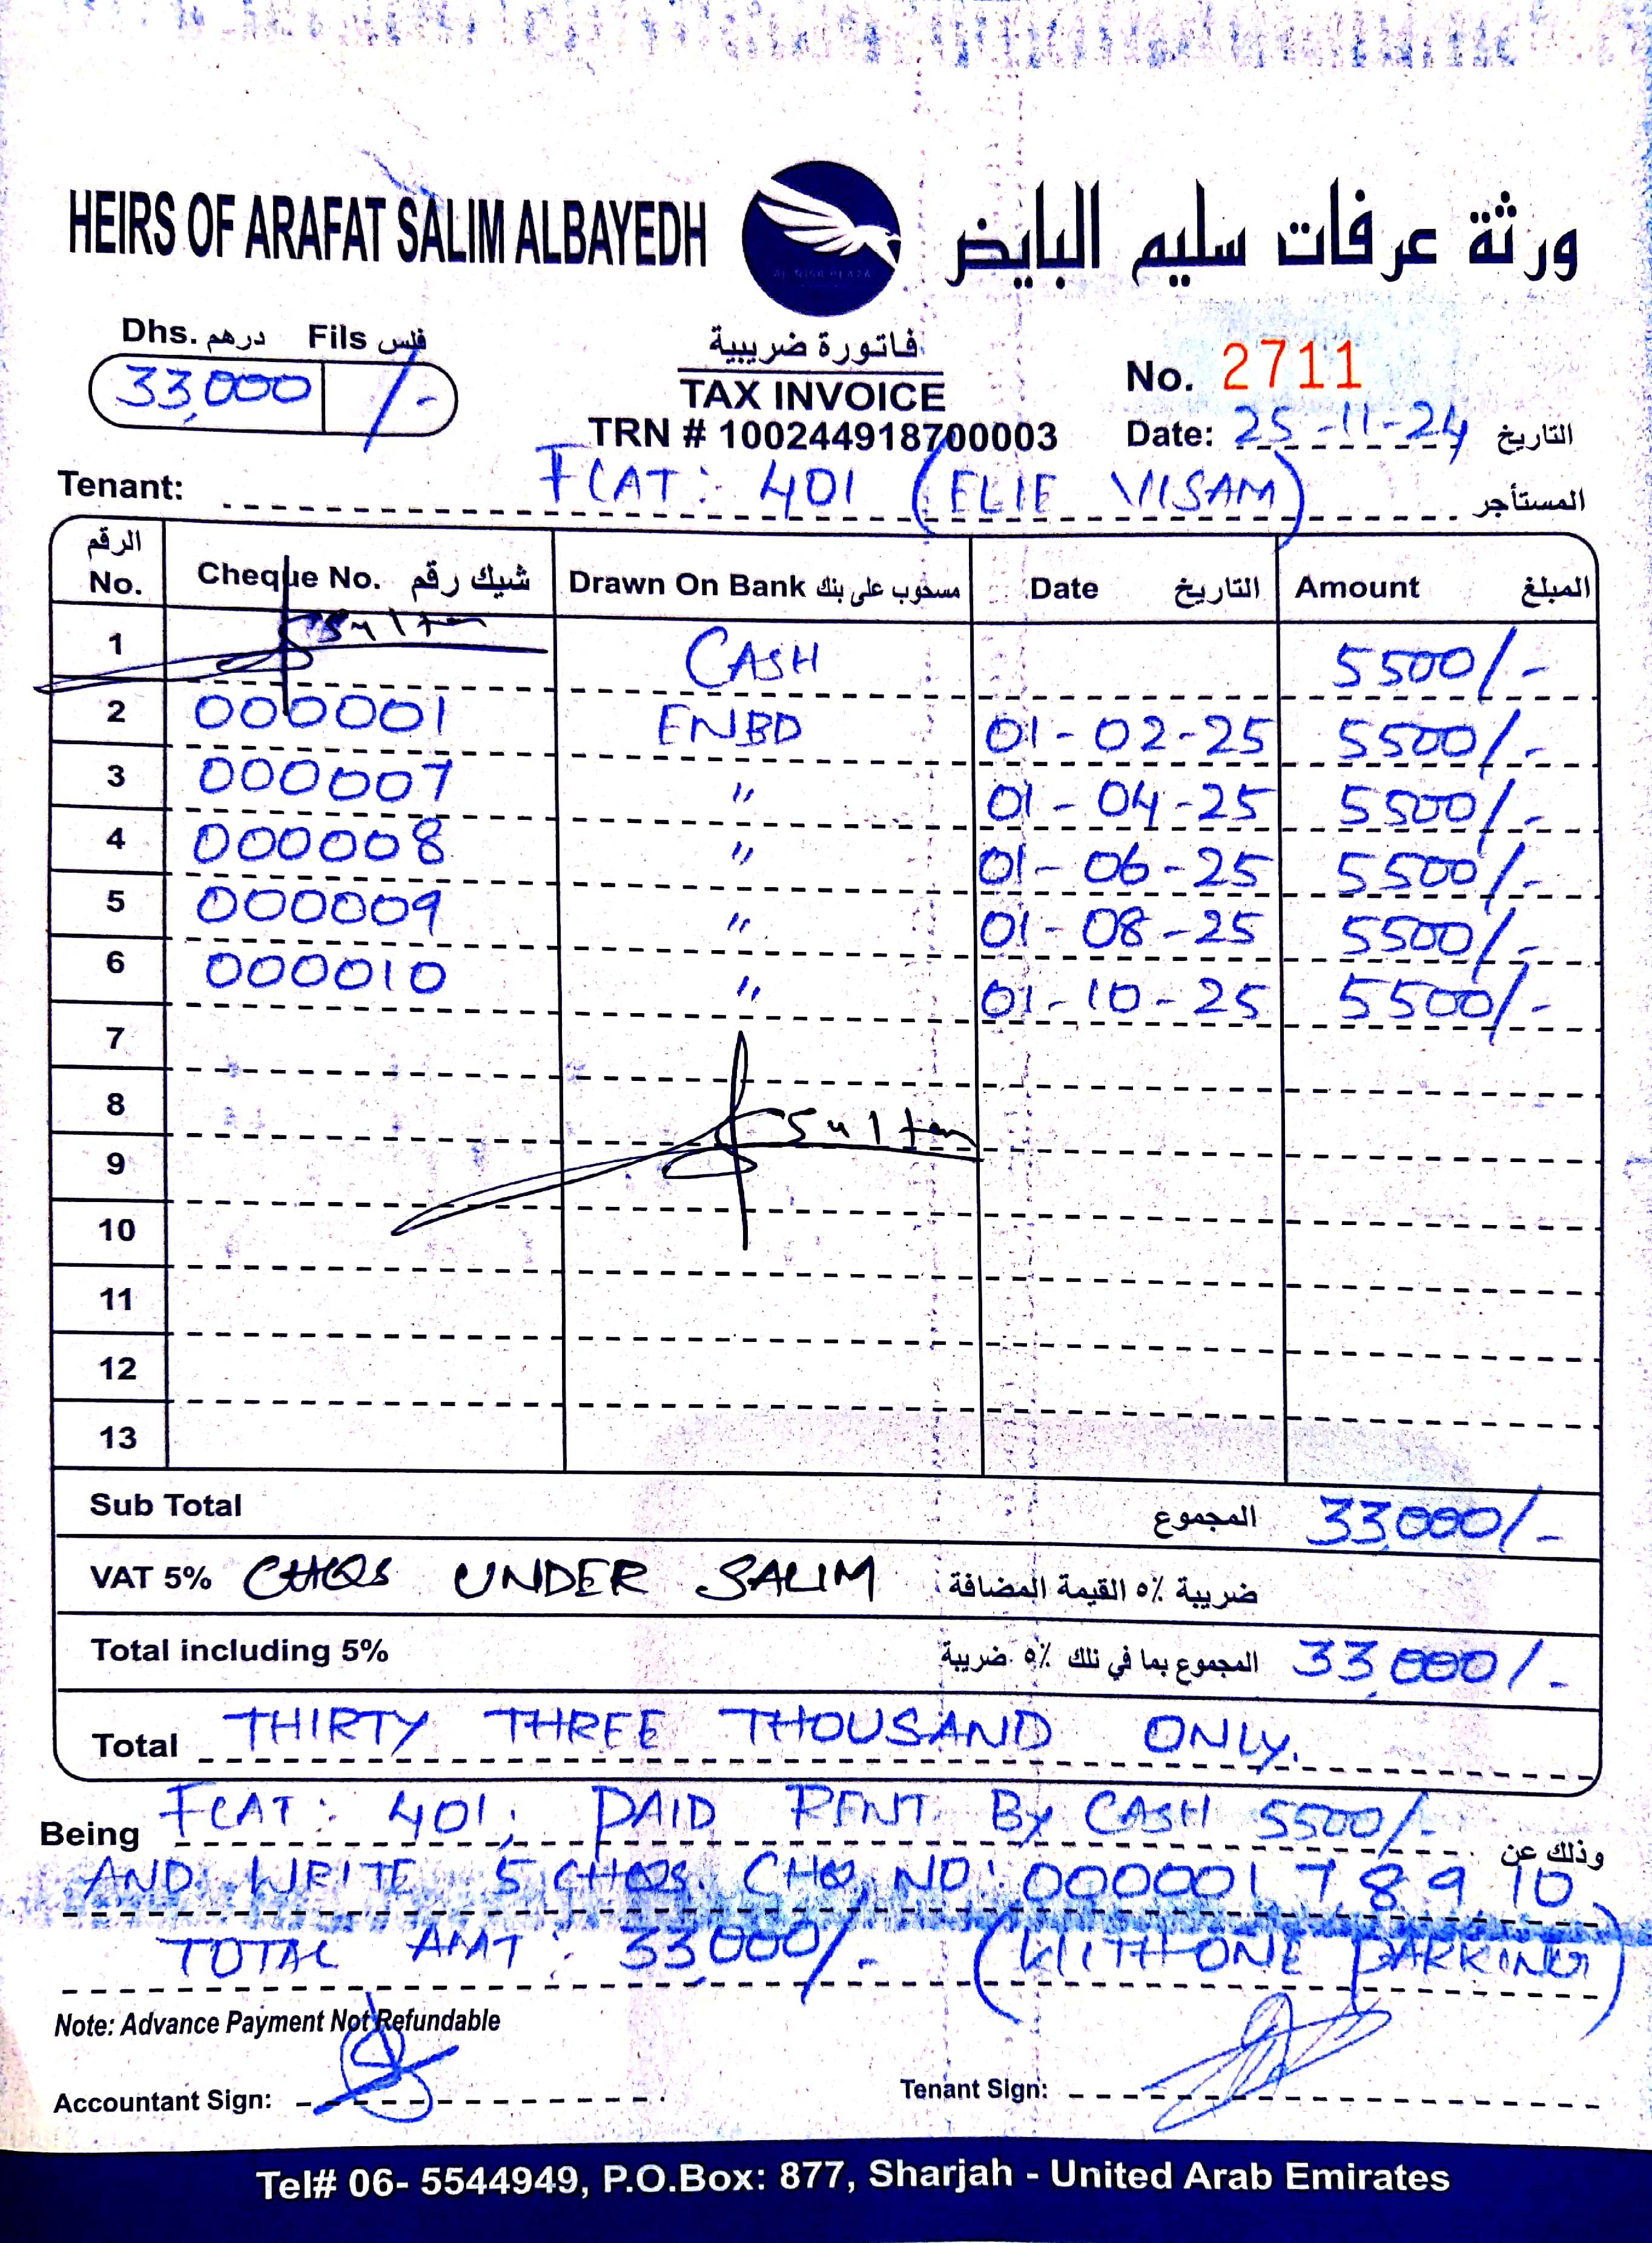 HEIRS OF ARAFAT SALIM ALBAYEDH
ورثة عرفات سليم البايض
AL NISR PLAZA
Dhs. درهم Fils فلس
33,000 /-
فاتورة ضريبية
TAX INVOICE
TRN # 100244918700003
No. 2711
Date: 25-11-24 التاريخ
Tenant: FLAT: 401 (ELIE WISAM) المستأجر
الرقم No. Cheque No. شيك رقم Drawn On Bank مسحوب على بنك Date التاريخ Amount المبلغ
1 Sultan CASH 5500/-
2 000001 ENBD 01-02-25 5500/-
3 000007 " 01-04-25 5500/-
4 000008 " 01-06-25 5500/-
5 000009 " 01-08-25 5500/-
6 000010 " 01-10-25 5500/-
7
8 Sultan
9
10
11
12
13
Sub Total المجموع 33,000/-
VAT 5% CHQS UNDER SALIM ضريبة ٥٪ القيمة المضافة
Total including 5% المجموع بما في ذلك ٥٪ ضريبة 33,000/-
Total THIRTY THREE THOUSAND ONLY.
Being FLAT: 401, PAID RENT BY CASH 5500/- وذلك عن
AND WRITE 5 CHQS. CHQ, NO: 000001 7 8 9 10
TOTAL AMT: 33,000/- (WITH ONE PARKING)
Note: Advance Payment Not Refundable
Accountant Sign:
Tenant Sign:
Tel# 06- 5544949, P.O.Box: 877, Sharjah - United Arab Emirates